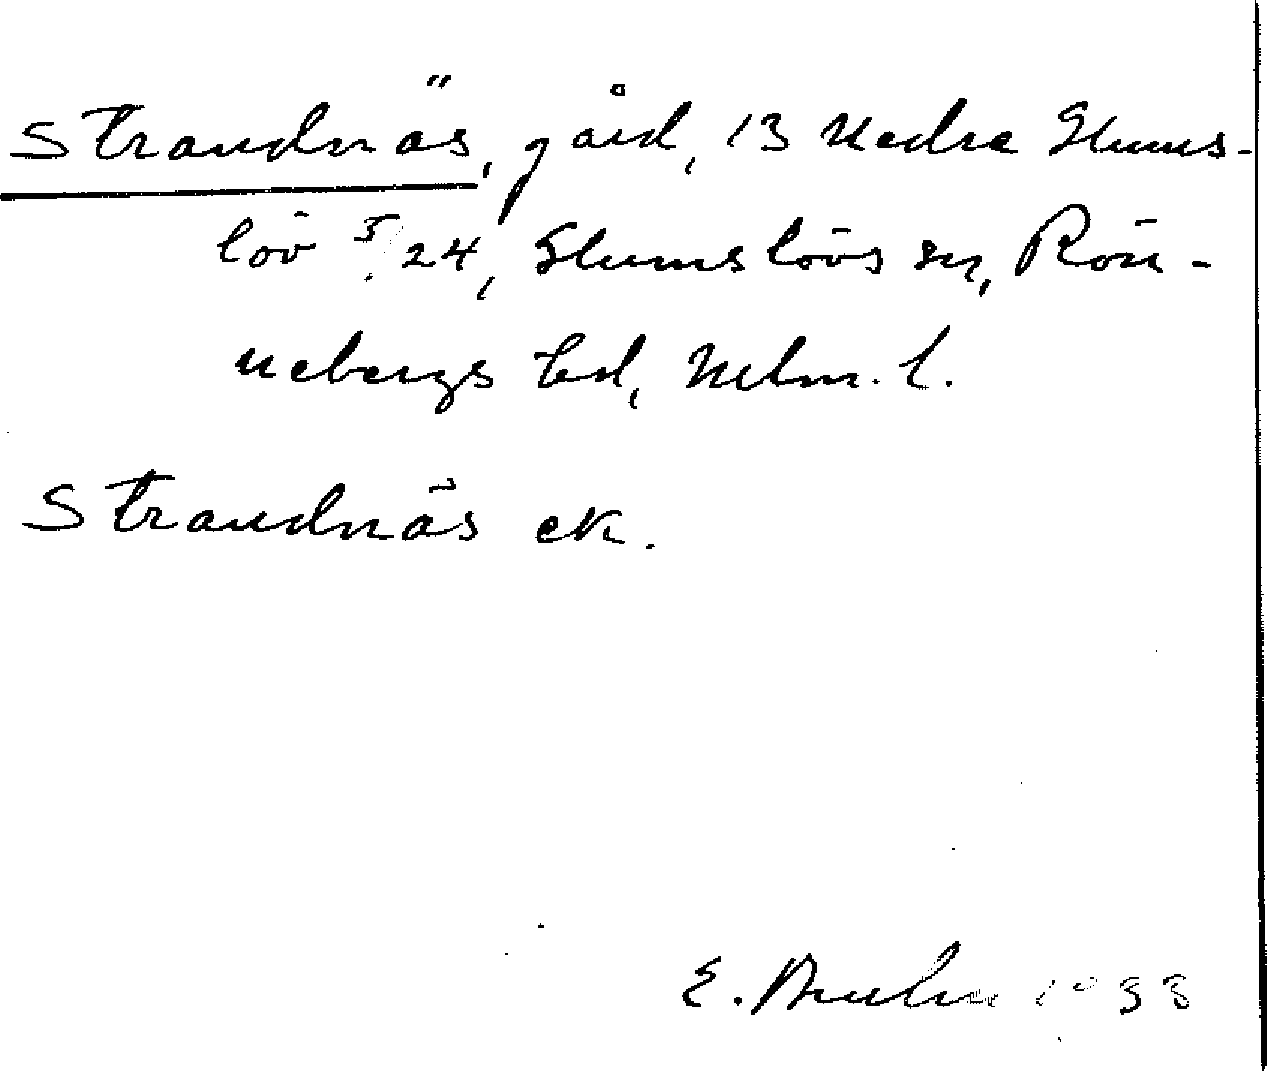 Strandnäs, gård, 13 Nedra Glums-
löv 5/24, Glumslövs sn, Rön-
nebergs hd, Mlm. l.
Strandnäs ek.
E. 1933